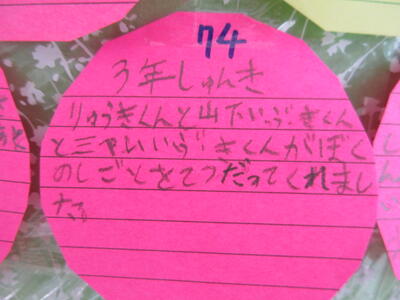 74
3年しゅんき
りゅうきくんと山下いぶきくん
と三 いぶきくんがぼく
のしごとをてつだってくれまし
た。